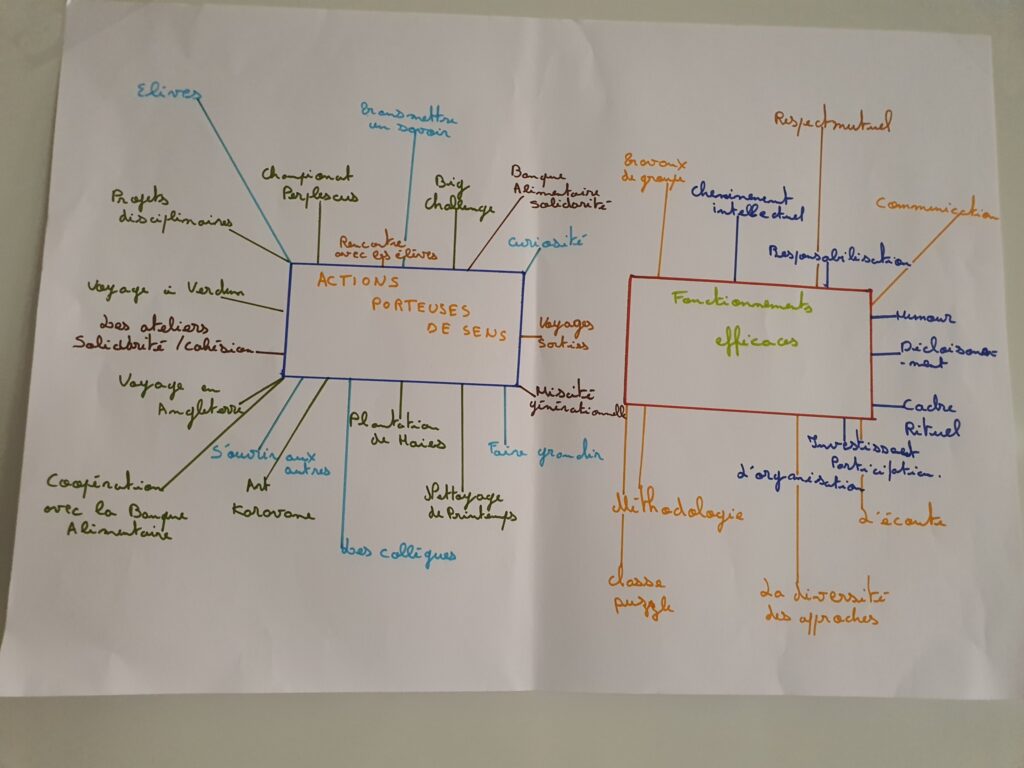 Elèves
Transmettre
un savoir
Championat
Perplexus
Big
Challenge
Banque
Alimentaire
Solidarité
Projets
disciplinaires
Rencontre
avec les élèves
Curiosité
ACTIONS
PORTEUSES
DE SENS
Voyage à Verdun
Les ateliers
Solidarité / Cohésion
Voyages
Sorties
Voyage en
Angleterre
Mixité
générationnelle
Plantation
de Haies
S'ouvrir aux
autres
Faire grandir
Coopération
avec la Banque
Alimentaire
Art
Karavane
Nettoyage
de Printemps
Les collègues
Respect mutuel
Travaux
de groupe
Cheminement
intellectuel
Communication
Responsabilisation
Fonctionnements
efficaces
Humour
Décloisonne-
-ment
Cadre
Rituel
Investissement
Participation.
L'organisation
Méthodologie
L'écoute
Classe
puzzle
La diversité
des approches